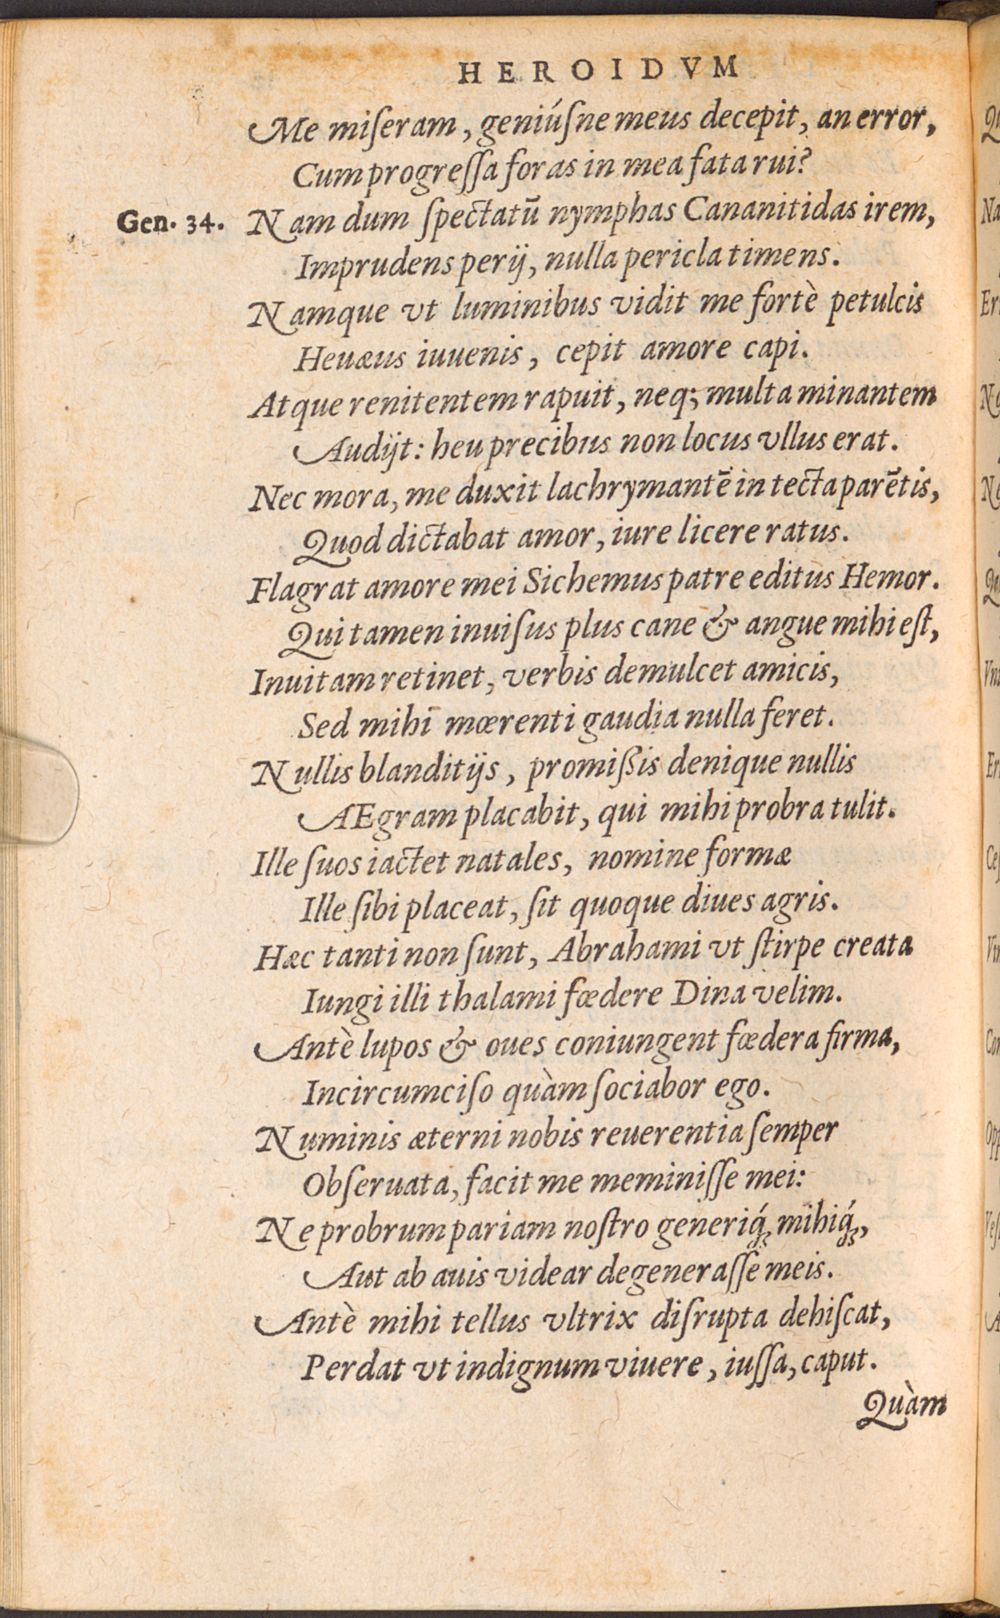 HEROIDVM
Me miſeram, geniúſne meus decepit, an error,
Cum progreſſa foras in mea fata rui?
Gen. 34. Nam dum ſpectatū nymphas Cananitidas irem,
Imprudens perij, nulla pericla timens.
Namque vt luminibus vidit me fortè petulcis
Heuæus iuuenis, cepit amore capi.
Atque renitentem rapuit, neq; multa minantem
Audijt: heu precibus non locus vllus erat.
Nec mora, me duxit lachrymantē in tecta parētis,
Quod dictabat amor, iure licere ratus.
Flagrat amore mei Sichemus patre editus Hemor.
Qui tamen inuiſus plus cane & angue mihi eſt,
Inuitam retinet, verbis demulcet amicis,
Sed mihi mœrenti gaudia nulla feret.
Nullis blanditijs, promiſsis denique nullis
AEgram placabit, qui mihi probra tulit.
Ille ſuos iactet natales, nomine formæ
Ille ſibi placeat, ſit quoque diues agris.
Hæc tanti non ſunt, Abrahami vt ſtirpe creata
Iungi illi thalami fœdere Dina velim.
Antè lupos & oues coniungent fœdera firma,
Incircumciſo quàm ſociabor ego.
Numinis æterni nobis reuerentia ſemper
Obſeruata, facit me meminiſſe mei:
Ne probrum pariam noſtro generiq́ꝫ mihiq́ꝫ,
Aut ab auis videar degeneraſſe meis.
Antè mihi tellus vltrix diſrupta dehiſcat,
Perdat vt indignum viuere, iuſſa, caput.
Quàm